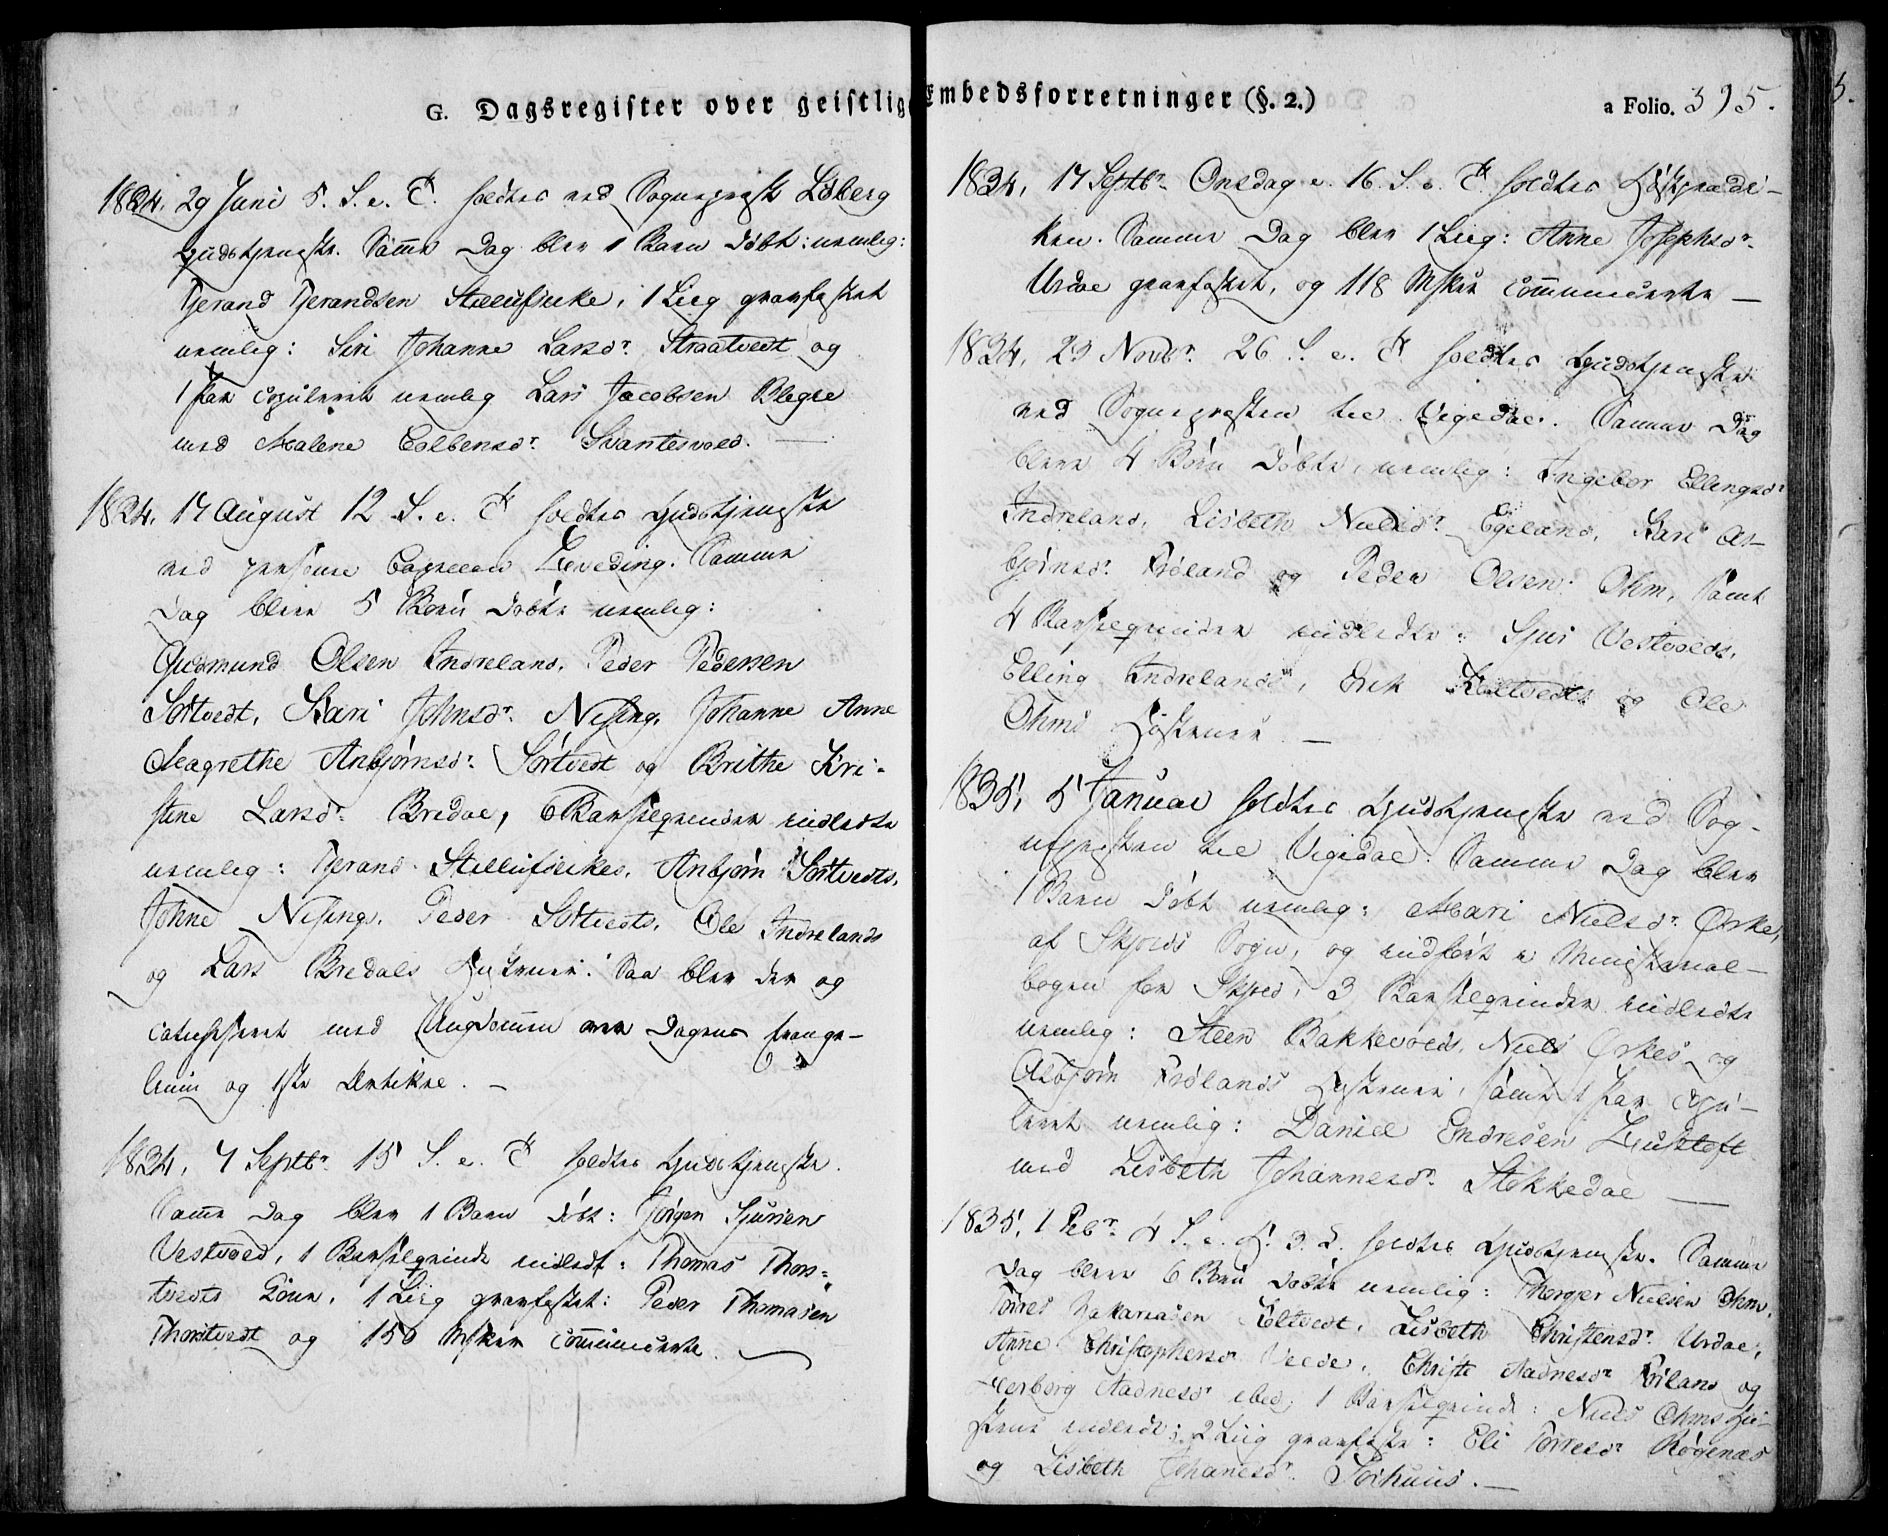 G. Dagsregister over geistlig Embedsforretninger (§. 2.)
a Folio. 395.
1834. 29 Juni 5. S. e. Tr. holdtes ved Sogneprest Löberg
Gudstjeneste. Samme Dag blev 1 Barn döbt: nemlig:
Tjerand Tjerandsen Stellufseike, 1 Liig gravfæstet
nemlig: Siri Johanne Larsdr. Straatvedt og
1 Par copuleret nemlig Lars Jacobsen Blegie
med Malene Colbensdr. Svantesvold. —
1834. 17 August 12 S. e. Tr holdtes Gudstjeneste
ved personel Capellan. Samme
Dag bleve 5 Börn döbte nemlig:
Gudmund Olsen Indreland, Peder Pedersen
Sörtvedt, Kari Johnsdr. Nising, Johanne Anne
Magrethe Anbjörnsdr. Sörtvedt og Brithe Kri-
stine Larsdr. Bredal, 6 Barselqvinder indledte
nemlig: Tjerand Stellufseikes, Anbjörn Sörtvedts,
Johne Nisings, Peder Sörtvedts, Ole Indrelands
og Lars Bredals Hustruer. Saa blev der og
catechiseret med Ungdommen over Dagens Evange-
lium og 1ste Artikel. —
1834. 7 Septbr. 15 S. e. Tr holdtes Gudstjeneste.
Samme Dag blev 1 Barn döbt: Jörgen Sjursen
Vestvold, 1 Barselqvinde indledt: Thomas Thors-
tvedts Kone, 1 Liig gravfæstet: Peder Thomasen
Thorstvedt og 150 Msker communicerte.
1834, 17 Septbr. Onsdag e. 16. S. e. Tr. holdtes Höstprædi-
ken. Samme Dag blev 1 Liig: Anne Josephsdr.
Urdal grafæstet, og 118 Msker communicerte —
1834, 23 Novbr. 26 S. e. Tr holdtes Gudstjeneste
ved Sognepresten til Vigedal. Samme Dag
bleve 4 Börn döbte, nemlig: Ingebor Ellingsdr
Indreland, Lisbeth Nielsdr. Egeland, Kari As-
björnsdr. Fröland og Peder Olsen Ohm, samt
4 Barselqvinder indledte: Sjur Vestvolds,
Elling Indrelands, Erik Költvedts og Ole
Ohms Hustruer. —
1835, 5 Januar holdtes Gudstjeneste ved Sog-
nepresten til Vigedal. Samme Dag blev
1 Barn döbt nemlig: Mari Nielsdr. Örke,
af Skjolds Sogn, og indfört i Ministerial-
bogen for Skjold, 3 Barselqvinder indledte
nemlig: Steen Bakkevolds, Niels Örkes og
Asbjörn Frölands Hustruer, samt 1 Par copu-
leret nemlig: Daniel Endresen
med Lisbeth Johannesdr. Stokkedal —
1835, 1 Febr. 4 S. e. H. 3. K. holdtes Gudstjeneste. Samme
Dag bleve 6 Börn döbte nemlig: Thorger Nielsen Ohm,
Torres Zakariasen Költvedt, Lisbeth Christensdr. Urdal,
Anne Christophersdr, Christi Aadnesdr Fröland og
Herborg Aadnesdr ibid, 1 Barselqvinde: Niels Ohms Hu-
strue indledt; 2 Liig gravfæste: Eli Torresdr Rögenæs
og Lisbeth Johanesdr. —